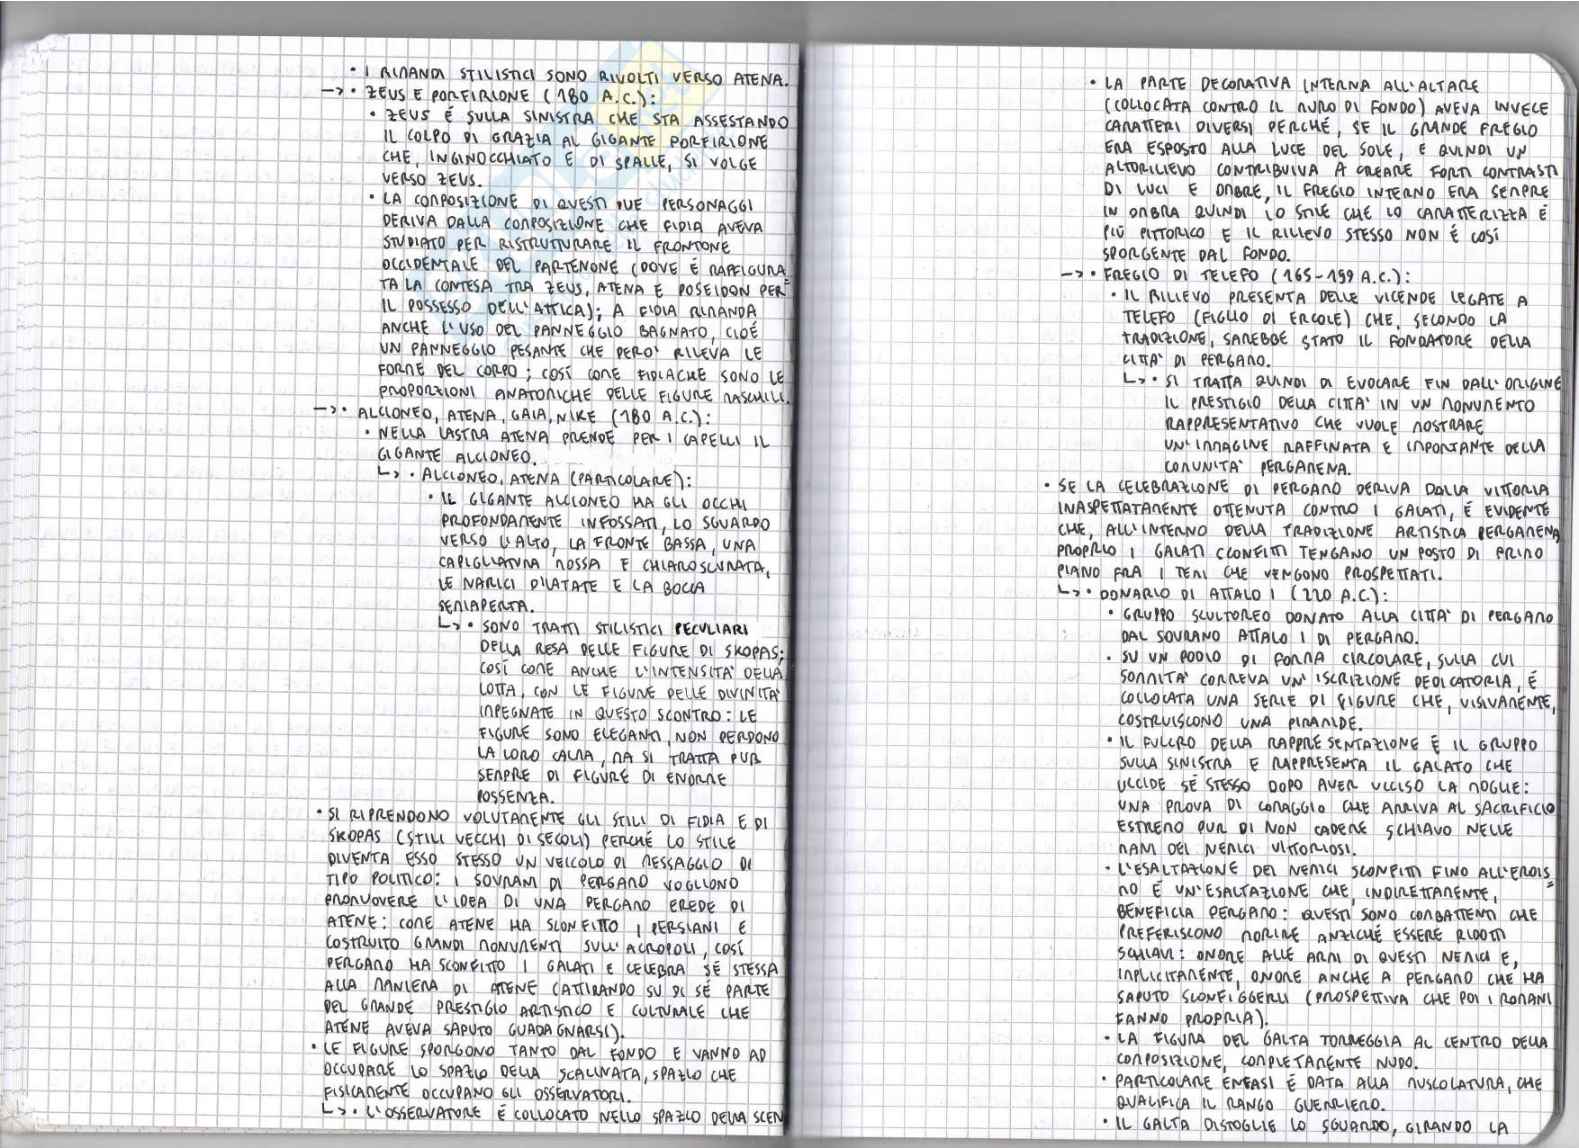 • I RIMANDI STILISTICI SONO RIVOLTI VERSO ATENA.
—>• ZEUS E PORFIRIONE (180 A.C.):
• ZEUS É SULLA SINISTRA CHE STA ASSESTANDO
IL COLPO DI GRAZIA AL GIGANTE PORFIRIONE
CHE, INGINOCCHIATO E DI SPALLE, SI VOLGE
VERSO ZEUS.
• LA COMPOSIZIONE DI QUESTI DUE PERSONAGGI
DERIVA DALLA COMPOSIZIONE CHE FIDIA AVEVA
STUDIATO PER RISTRUTTURARE IL FRONTONE
OCCIDENTALE DEL PARTENONE (DOVE É RAFFIGURA
TA LA CONTESA TRA ZEUS, ATENA E POSEIDON PER
IL POSSESSO DELL'ATTICA); A FIDIA RIMANDA
ANCHE L'USO DEL PANNEGGIO BAGNATO, CIOÉ
UN PANNEGGIO PESANTE CHE PERO' RILEVA LE
FORME DEL CORPO; COSÍ COME FIDIACHE SONO LE
PROPORZIONI ANATOMICHE DELLE FIGURE MASCHILI.
—>• ALCIONEO, ATENA, GAIA, NIKE (180 A.C.):
• NELLA LASTRA ATENA PRENDE PER I CAPELLI IL
GIGANTE ALCIONEO.
↳• ALCIONEO, ATENA (PARTICOLARE):
• IL GIGANTE ALCIONEO HA GLI OCCHI
PROFONDAMENTE INFOSSATI, LO SGUARDO
VERSO L'ALTO, LA FRONTE BASSA, UNA
CAPIGLIATURA MOSSA E CHIAROSCURATA,
LE NARICI DILATATE E LA BOCCA
SEMIAPERTA.
↳• SONO TRATTI STILISTICI PECULIARI
DELLA RESA DELLE FIGURE DI SKOPAS;
COSÍ COME ANCHE L'INTENSITA' DELLA
LOTTA, CON LE FIGURE DELLE DIVINITA'
IMPEGNATE IN QUESTO SCONTRO: LE
FIGURE SONO ELEGANTI, NON PERDONO
LA LORO CALMA, MA SI TRATTA PUR
SEMPRE DI FIGURE DI ENORME
POSSENZA.
• SI RIPRENDONO VOLUTAMENTE GLI STILI DI FIDIA E DI
SKOPAS (STILI VECCHI DI SECOLI) PERCHÉ LO STILE
DIVENTA ESSO STESSO UN VEICOLO DI MESSAGGIO DI
TIPO POLITICO: I SOVRANI DI PERGAMO VOGLIONO
PROMUOVERE L'IDEA DI UNA PERGAMO EREDE DI
ATENE: COME ATENE HA SCONFITTO I PERSIANI E
COSTRUITO GRANDI MONUMENTI SULL'ACROPOLI, COSÍ
PERGAMO HA SCONFITTO I GALATI E CELEBRA SÉ STESSA
ALLA MANIERA DI ATENE (ATTIRANDO SU DI SÉ PARTE
DEL GRANDE PRESTIGIO ARTISTICO E CULTURALE CHE
ATENE AVEVA SAPUTO GUADAGNARSI).
• LE FIGURE SPORGONO TANTO DAL FONDO E VANNO AD
OCCUPARE LO SPAZIO DELLA SCALINATA, SPAZIO CHE
FISICAMENTE OCCUPANO GLI OSSERVATORI.
↳• L'OSSERVATORE É COLLOCATO NELLO SPAZIO DELLA SCEN
• LA PARTE DECORATIVA INTERNA ALL'ALTARE
(COLLOCATA CONTRO IL MURO DI FONDO) AVEVA INVECE
CARATTERI DIVERSI PERCHÉ, SE IL GRANDE FREGIO
ERA ESPOSTO ALLA LUCE DEL SOLE, E QUINDI UN
ALTORILIEVO CONTRIBUIVA A CREARE FORTI CONTRASTI
DI LUCI E OMBRE, IL FREGIO INTERNO ERA SEMPRE
IN OMBRA QUINDI LO STILE CHE LO CARATTERIZZA É
PIÚ PITTORICO E IL RILIEVO STESSO NON É COSÍ
SPORGENTE DAL FONDO.
—>• FREGIO DI TELEFO (165-159 A.C.):
• IL RILIEVO PRESENTA DELLE VICENDE LEGATE A
TELEFO (FIGLIO DI ERCOLE) CHE, SECONDO LA
TRADIZIONE, SAREBBE STATO IL FONDATORE DELLA
CITTA' DI PERGAMO.
↳• SI TRATTA QUINDI DI EVOCARE FIN DALL'ORIGINE
IL PRESTIGIO DELLA CITTA' IN UN MONUMENTO
RAPPRESENTATIVO CHE VUOLE MOSTRARE
UN'IMMAGINE RAFFINATA E IMPORTANTE DELLA
COMUNITA' PERGAMENA.
• SE LA CELEBRAZIONE DI PERGAMO DERIVA DALLA VITTORIA
INASPETTATAMENTE OTTENUTA CONTRO I GALATI, É EVIDENTE
CHE, ALL'INTERNO DELLA TRADIZIONE ARTISTICA PERGAMENA
PROPRIO I GALATI SCONFITTI TENGANO UN POSTO DI PRIMO
PIANO FRA I TEMI CHE VENGONO PROSPETTATI.
↳• DONARIO DI ATTALO I (220 A.C.):
• GRUPPO SCULTOREO DONATO ALLA CITTA' DI PERGAMO
DAL SOVRANO ATTALO I DI PERGAMO.
• SU UN PODIO DI FORMA CIRCOLARE, SULLA CUI
SOMMITA' CORREVA UN'ISCRIZIONE DEDICATORIA, É
COLLOCATA UNA SERIE DI FIGURE CHE, VISIVAMENTE,
COSTRUISCONO UNA PIRAMIDE.
• IL FULCRO DELLA RAPPRESENTAZIONE É IL GRUPPO
SULLA SINISTRA E RAPPRESENTA IL GALATO CHE
UCCIDE SÉ STESSO DOPO AVER UCCISO LA MOGLIE:
UNA PROVA DI CORAGGIO CHE ARRIVA AL SACRIFICIO
ESTREMO PUR DI NON CADERE SCHIAVO NELLE
MANI DEI NEMICI VITTORIOSI.
• L'ESALTAZIONE DEI NEMICI SCONFITTI FINO ALL'EROIS=
MO É UN'ESALTAZIONE CHE, INDIRETTAMENTE,
BENEFICIA PERGAMO: QUESTI SONO COMBATTENTI CHE
PREFERISCONO MORIRE ANZICHÉ ESSERE RIDOTTI
SCHIAVI: ONORE ALLE ARMI DI QUESTI NEMICI E,
IMPLICITAMENTE, ONORE ANCHE A PERGAMO CHE HA
SAPUTO SCONFIGGERLI (PROSPETTIVA CHE POI I ROMANI
FANNO PROPRIA).
• LA FIGURA DEL GALTA TORREGGIA AL CENTRO DELLA
COMPOSIZIONE, COMPLETAMENTE NUDO.
• PARTICOLARE ENFASI É DATA ALLA MUSCOLATURA, CHE
QUALIFICA IL RANGO GUERRIERO.
• IL GALTA DISTOGLIE LO SGUARDO, GIRANDO LA